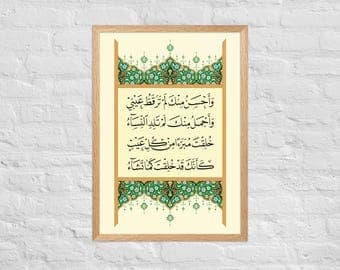 وَأَحْسَنُ مِنْكَ لَمْ تَرَ قَطُّ عَيْنِي
وَأَجْمَلُ مِنْكَ لَمْ تَلِدِ النِّسَاءُ
خُلِقْتَ مُبَرَّءًا مِنْ كُلِّ عَيْبٍ
كَأَنَّكَ قَدْ خُلِقْتَ كَمَا تَشَاءُ